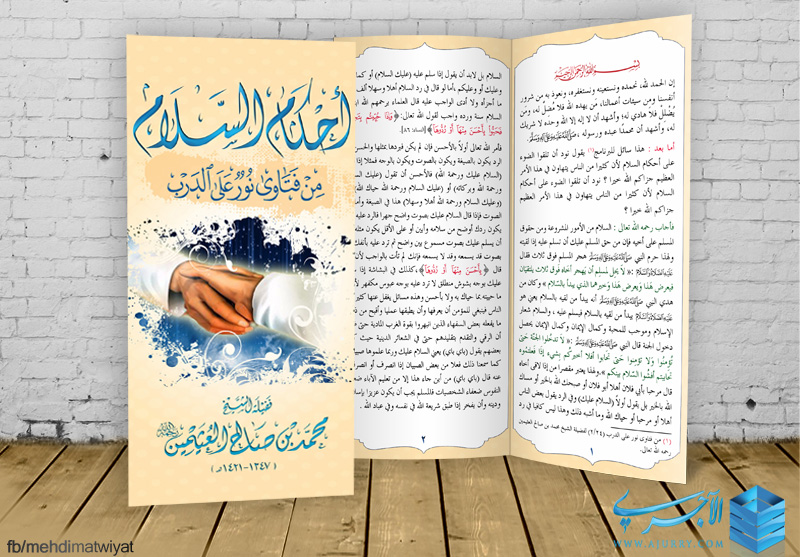 أحكام السلام
من فتاوى نور على الدرب
فضيلة الشيخ
محمد بن صالح العثيمين رحمه الله
(١٣٤٧-١٤٢١هـ)
بسم الله الرحمن الرحيم
إن الحمد لله، نحمده ونستعينه ونستغفره، ونعوذ به من شرور
أنفسنا ومن سيئات أعمالنا، مَن يهده الله فلا مُضلّ له، ومن
يُضلِل فلا هادي له، وأشهد أن لا إله إلا الله وحده لا شريك
له، وأشهد أن محمدًا عبده ورسوله، ﷺ
أما بعد : هذا سائل للبرنامج(١) يقول نود أن تلقوا الضوء
على أحكام السلام لأن كثيرا من الناس يتهاون في هذا الأمر
العظيم جزاكم الله خيرا ؟ نود أن تلقوا الضوء على أحكام
السلام لأن كثيرا من الناس يتهاون في هذا الأمر العظيم
جزاكم الله خيرا ؟
فأجاب رحمه الله تعالى : السلام من الأمور المشروعة ومن حقوق
المسلم على أخيه فإن من حق المسلم عليك أن تسلم عليه إذا لقيته
ولهذا حرم النبي ﷺ هجر المسلم فوق ثلاث فقال
عليه الصلاة والسلام: «لا يحل لمسلم أن يهجر أخاه فوق ثلاث يلتقيان
فيعرض هذا ويعرض هذا وخيرهما الذي يبدأ بالسلام» وكان من
هدي النبي ﷺ أنه يبدأ من لقيه بالسلام يعني هو
عليه الصلاة والسلام يبدأ من لقيه بالسلام فيسلم عليه ، والسلام شعار
الإسلام وموجب للمحبة وكمال الإيمان وكمال الإيمان يحصل
دخول الجنة قال النبي ﷺ «لا تدخلوا الجنة حتى
تؤمنوا ولا تؤمنوا حتى تحابوا أفلا أخبركم بشيء إذا فعلتموه
تحاببتم أفشوا السلام بينكم»
قال مرحبا بأبي فلان أهلا أبو فلان أو صبحك الله بالخير أو مساك
الله بالخير بل يقول أولاً (السلام عليك) وفي الرد يقول بعض الناس
أهلا أو مرحبا أو حياك الله وما أشبه ذلك وهذا ليس كافيا في رد
(١) من فتاوى نور على الدرب (٢/٢٤) لفضيلة الشيخ محمد بن صالح العثيمين
رحمه الله تعالى.
١
السلام بل لابد أن يقول إذا سلم عليه (عليك السلام) أو كما
وعليك أو وعليكم بأما لو قال في رد السلام أهلا وسهلا ألف
ما أجزأه ولا أدى الواجب عليه قال العلماء يرحمهم الله
السلام سنة ورده واجب لقول الله تعالى: ﴿وإذا حييتم
فحيوا بأحسن منها أو ردوها﴾[النساء: ٨٦]
فأمر الله تعالى أولاً بالأحسن فإن لم يكن فبردها بمثلها والحسن
الرد يكون بالصيغة ويكون بالصوت ويكون بالوجه فمثلا إذا
(السلام عليك ورحمة الله) فالأحسن أن تقول (عليك السلام
ورحمة الله وبركاته) أو (عليك السلام ورحمة الله حياك
(وعليك السلام ورحمة الله أهلا وسهلا) هذا في الصيغة وأما
الصوت فإذا قال السلام عليك بصوت واضح جهرا فالرد عليه
يكون ردك أوضح من سلامه وأبين أو على الأقل يكون مثله
أن يسلم عليك بصوت مسموع بين واضح ثم ترد عليه بأنفك
بصوت قد يسمعه وقد لا يسمعه فإنك لم تأت بالواجب لأن
قال ﴿بأحسن منها أو ردوها﴾ ،كذلك في البشاشة إذا
عليك بوجه بشوش منطلق لا ترد عليه بوجه عبوس مكفهر
ما حييته بما حياك به ولا بأحسن وهذه مسائل يغفل عنها كثير
الناس فينبغي للمؤمن أن يعرفها وأن يطبقها عمليا وأقبح من
ما يفعله بعض السفهاء الذين انبهروا بقوة الغرب المادية حتى
أن الرقي والتقدم بتقليدهم حتى في الشعائر الدينية حيث
بعضهم يقول (باي باي) يعني السلام عليك وربما علموها صبيا
كما سمعنا ذلك فعلا من بعض الصبيان إذا انصرف أو انصر
عنه قال (باي باي) من أين جاء هذا إلا من تعليم الآباء
النفوس ضعفاء الشخصيات فالمسلم يجب أن يكون عزيزا
ودينه وأن يفخر إذا طبق شريعة الله في نفسه وفي عباد الله .
٢
الآجري
WWW.AJURRY.COM
fb/mehdimatwiyat